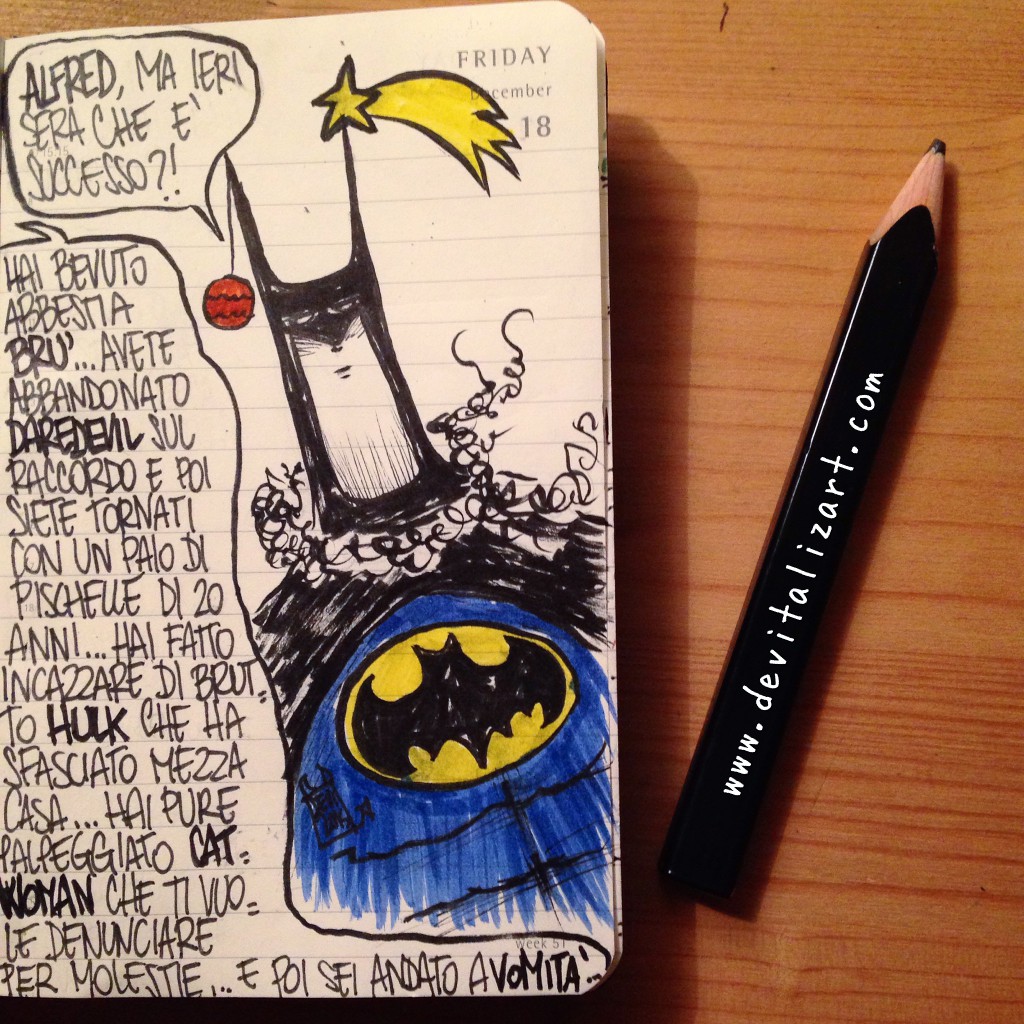 ALFRED, MA IERI
SERA CHE È
SUCCESSO?!
FRIDAY
December
18
HAI BEVUTO
ABBESTIA
BRU'... AVETE
ABBANDONATO
DAREDEVIL SUL
RACCORDO E POI
SIETE TORNATI
CON UN PAIO DI
PISCHELLE DI 20
ANNI... HAI FATTO
INCAZZARE DI BRUT-
TO HULK CHE HA
SFASCIATO MEZZA
CASA... HAI PURE
PALPEGGIATO CAT-
WOMAN CHE TI VUO=
LE DENUNCIARE
PER MOLESTIE... E POI SEI ANDATO A VOMITÀ...
week 51
www.devitalizart.com